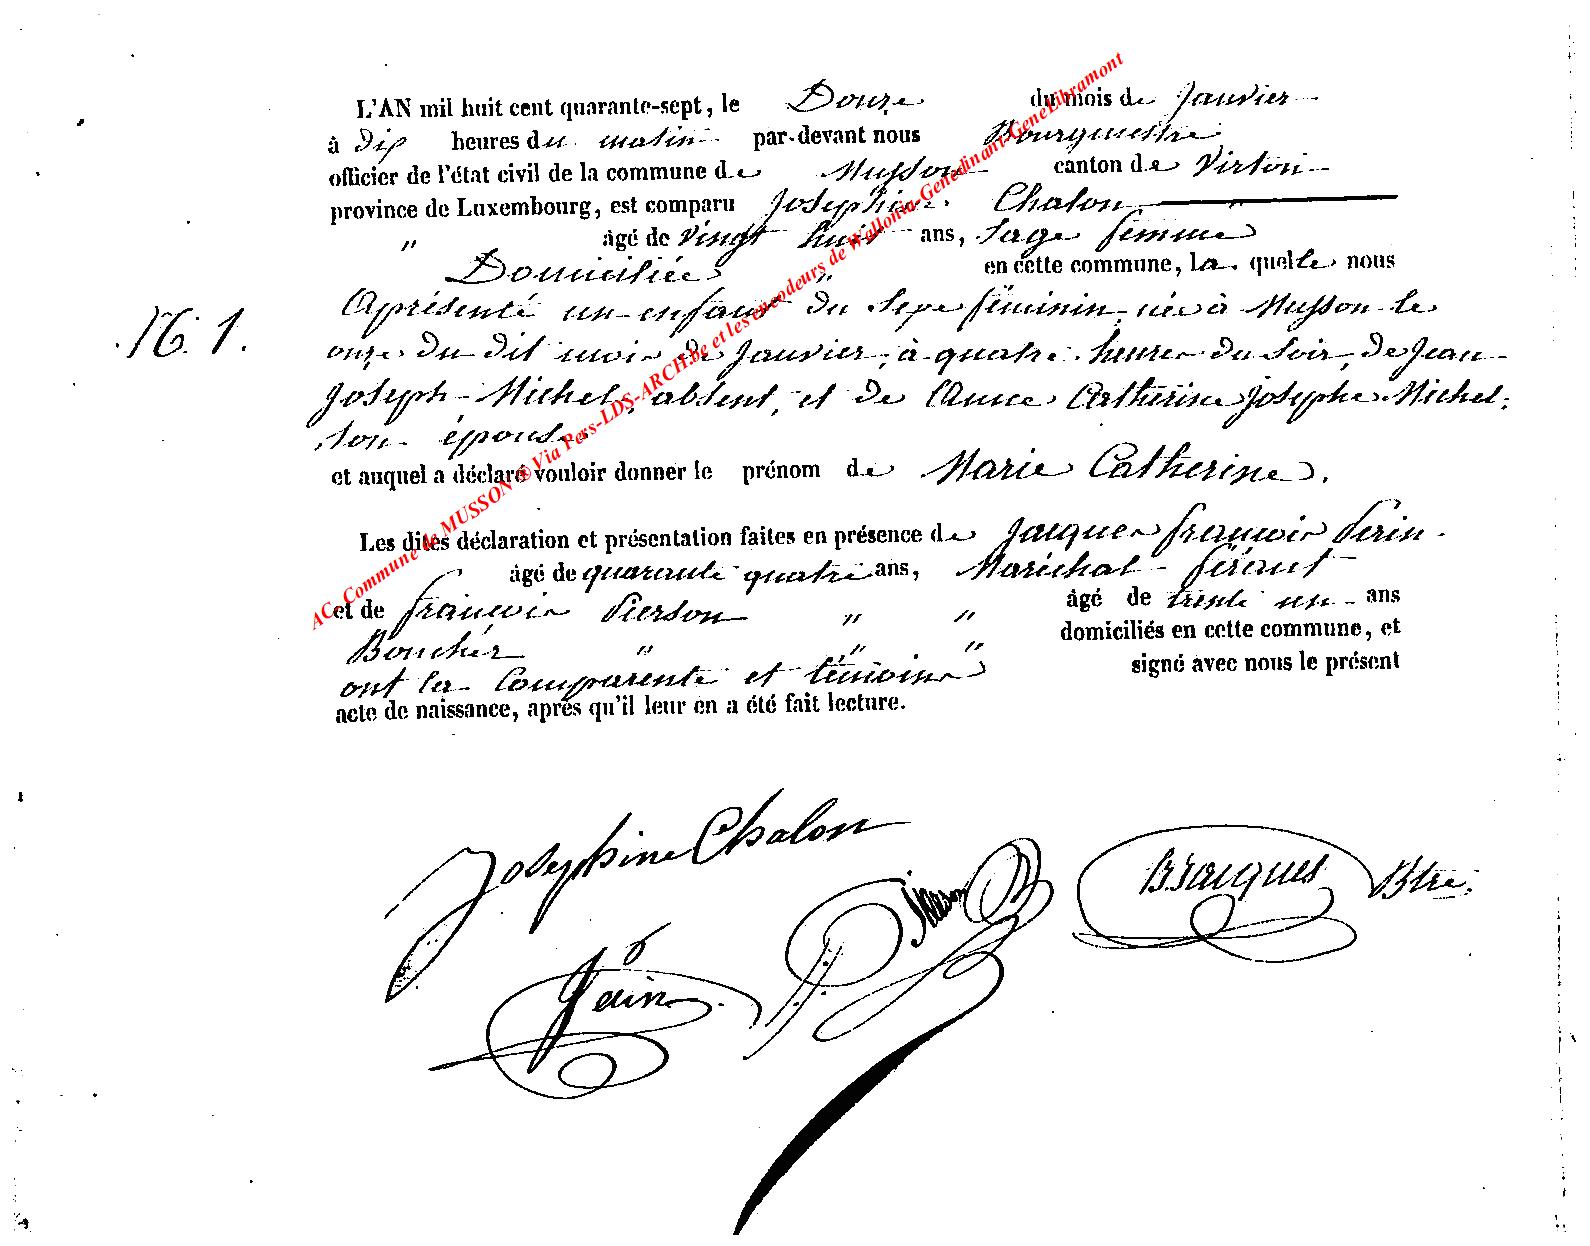 L'AN mil huit cent quarante-sept, le Douze du mois de Janvier
à dix heures du matin par-devant nous Bourguestre
officier de l'état civil de la commune de Musson canton de Virton
province de Luxembourg, est comparu Joséphine Chalon
" âgé de vingt huit ans, Sage femme
Domiciliée " en cette commune, la quelle nous
A présenté un enfant du Sexe féminin, née à Musson le
onze du dit mois de Janvier, à quatre heures du Soir, de Jean
N. 1.
Joseph Michel, absent, et de Anne Catherine Josephe Michel,
son épouse
et auquel a déclaré vouloir donner le prénom de Marie Catherine.
Les dites déclaration et présentation faites en présence de Jacques françois Perin
âgé de quarante quatre ans, Maréchal férant
et de françois Pierson " " âgé de trente un ans
Boucher " " " domiciliés en cette commune, et
ont les Comparente et témoins signé avec nous le présent
acte de naissance, après qu'il leur en a été fait lecture.
Josephine Chalon
B Jacques Btre
Pierson
Perin
AC. Commune de MUSSON ® Via Pers-LDS-ARCH.be et les encodeurs de Wallonia-Genedinant-GeneLibramont